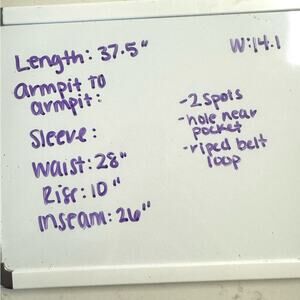 Length: 37.5"
W:14.1
armpit to
armpit:
Sleeve:
Waist: 28"
Rise: 10"
inseam: 26"
-2 spots
-hole near
pocket
-riped belt
loop